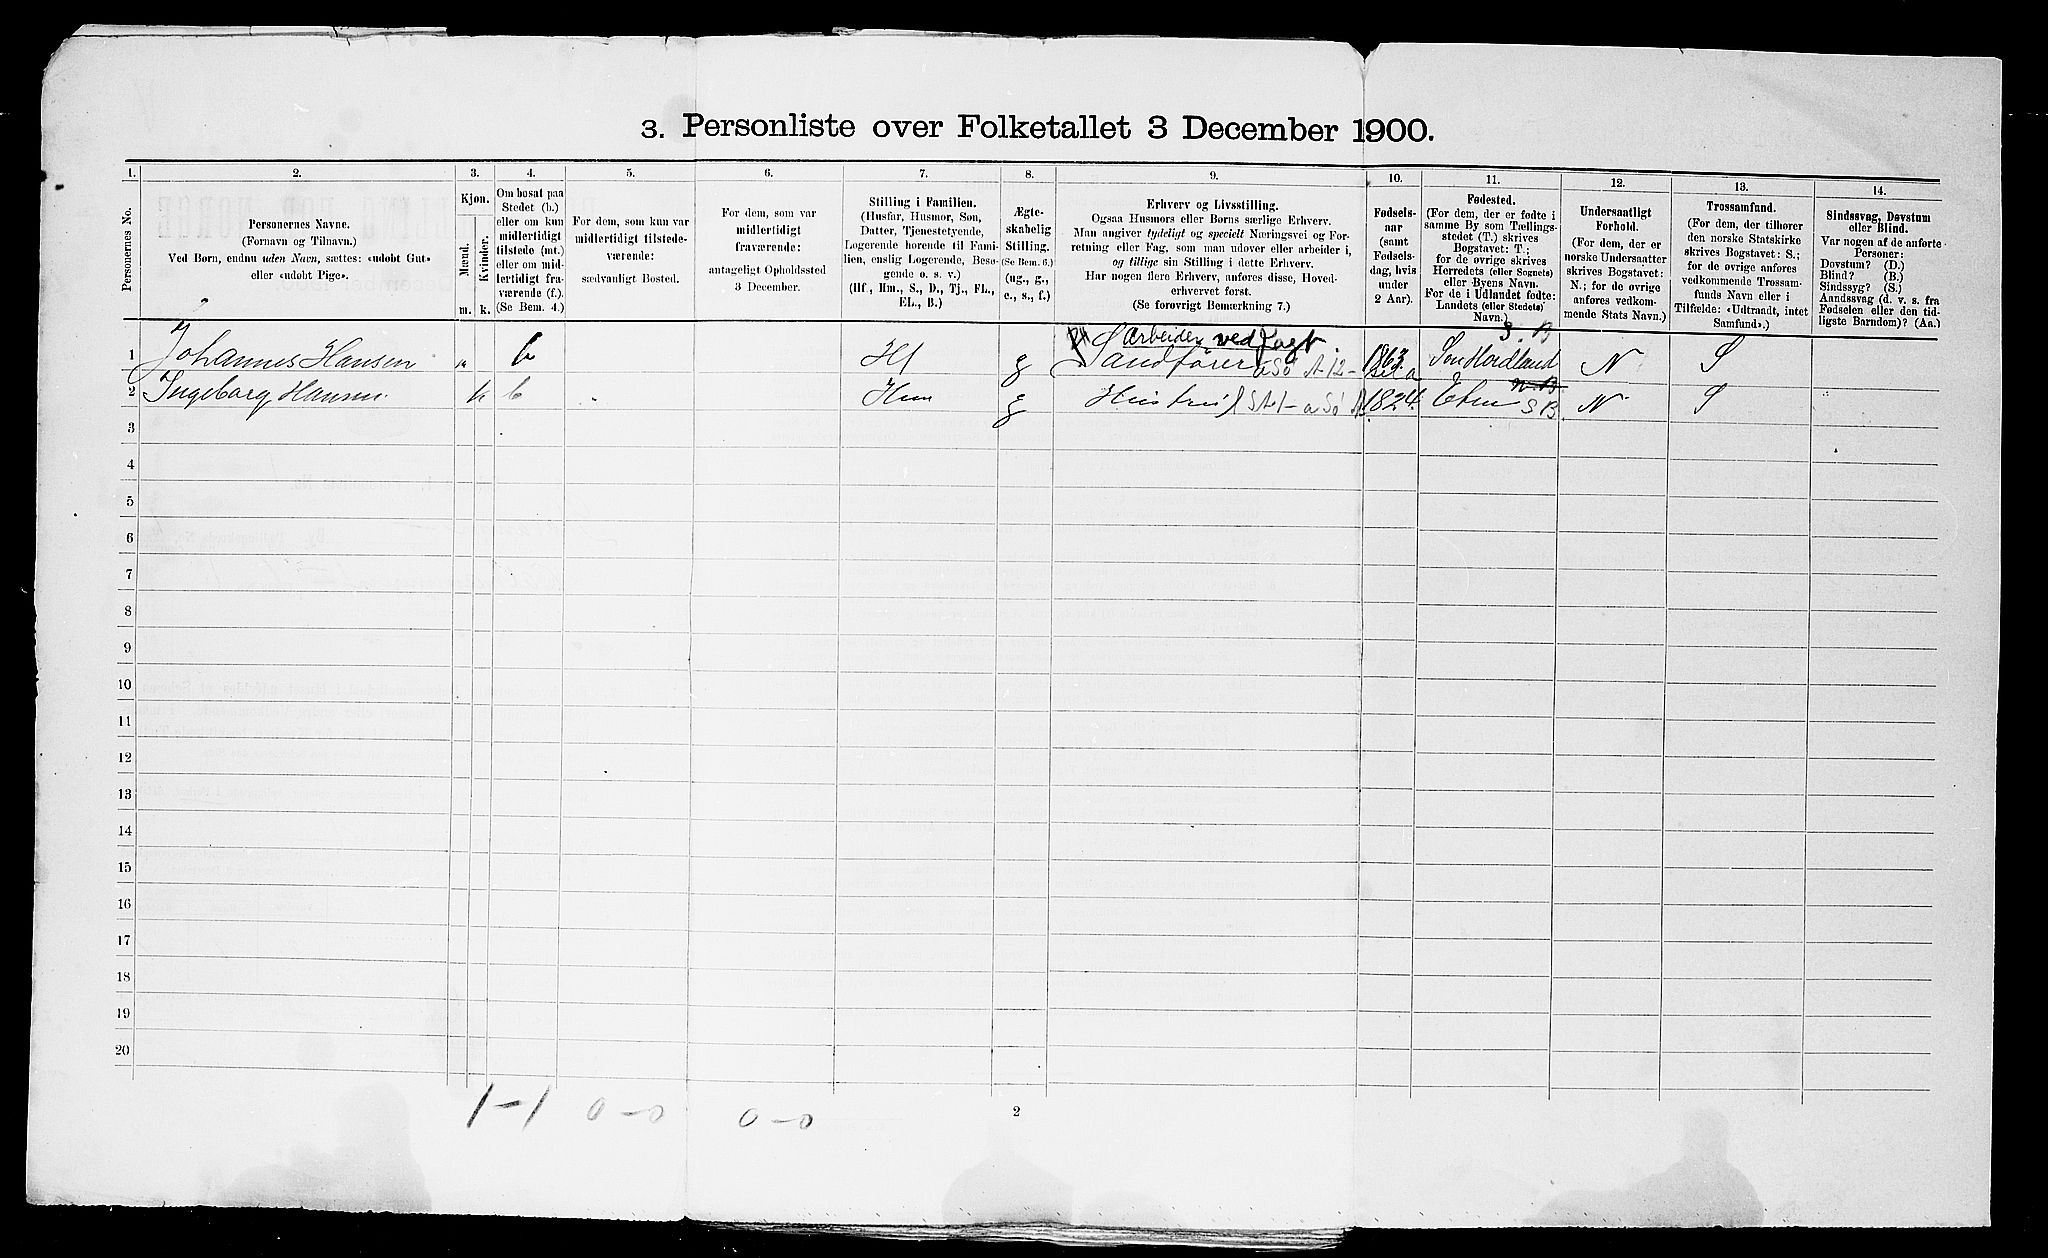 3. Personliste over Folketallet 3 December 1900.
1. 2. 3. 4. 5. 6. 7. 8. 9. 10. 11. 12. 13. 14.
Personernes No.
Personernes Navne.
(Fornavn og Tilnavn.)
Ved Børn, endnu uden Navn, sættes: «udøbt Gut»
eller «udøbt Pige».
Kjøn.
Mænd.
Kvinder.
m. k.
Om bosat paa
Stedet (b.)
eller om kun
midlertidigt
tilstede (mt.)
eller om mid-
lertidigt fra-
værende (f.).
(Se Bem. 4.)
For dem, som kun var
midlertidigt tilstede-
værende:
sædvanligt Bosted.
For dem, som var
midlertidigt
fraværende:
antageligt Opholdssted
3 December.
Stilling i Familien.
(Husfar, Husmor, Søn,
Datter, Tjenestetyende,
Logerende hørende til Fami-
lien, enslig Logerende, Besø-
gende o. s. v.)
(Hf., Hm., S., D., Tj., FL.,
EL., B.)
Ægte-
skabelig
Stilling.
(Se Bem. 6.)
(ug., g.,
e., s., f.)
Erhverv og Livsstilling.
Ogsaa Husmors eller Børns særlige Erhverv.
Man angiver tydeligt og specielt Næringsvei og For-
retning eller Fag, som man udøver eller arbeider i,
og tillige sin Stilling i dette Erhverv.
Har nogen flere Erhverv, anføres disse, Hoved-
erhvervet først.
(Se forøvrigt Bemærkning 7.)
Fødsels-
aar
(samt
Fødsels-
dag, hvis
under
2 Aar).
Fødested.
(For dem, der er fødte i
samme By som Tællings-
stedet (T.) skrives
Bogstavet: T.;
for de øvrige skrives
Herredets (eller Sognets)
eller Byens Navn.
For de i Udlandet fødte:
Landets (eller Stedets)
Navn.)
Undersaatligt
Forhold.
(For dem, der er
norske Undersaatter
skrives Bogstavet:
N.; for de øvrige
anføres vedkom-
mende Stats Navn.)
Trossamfund.
(For dem, der tilhører
den norske Statskirke
skrives Bogstavet: S.;
for de øvrige anføres
vedkommende Trossam-
funds Navn eller i
Tilfælde: «Udtraadt, intet
Samfund».)
Sindssvag, Døvstum
eller Blind.
Var nogen af de anførte
Personer:
Døvstum? (D.)
Blind? (B.)
Sindssyg? (S.)
Aandssvag (d. v. s. fra
Fødselen eller den tid-
ligste Barndom)? (Aa.)
Arbeider ved S. B
1 Johannes Hansen b Hf g Sandfører 1863 N S
2 Ingeborg Hansen k b Hm g Hustru 1824 Etne S B N S
3
4
5
6
7
8
9
10
11
12
13
14
15
16
17
18
19
20
1-1 0-0 0-0
2